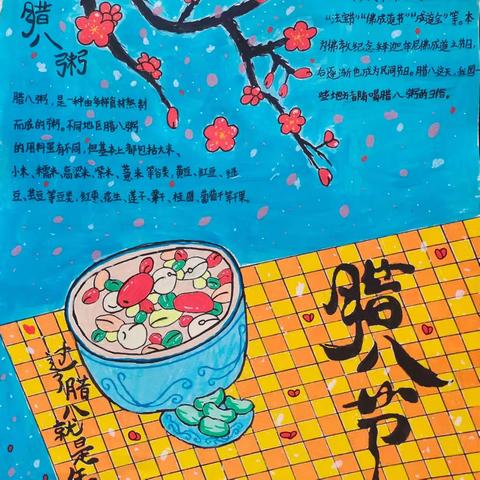 腊八粥
腊八粥，是一种由多种食材熬制
而成的粥。不同地区腊八粥
的用料虽有不同，但基本上都包括大米、
小米、糯米、高粱米、紫米、薏米等谷类，黄豆、红豆、绿
豆、芸豆等豆类，红枣、花生、莲子、桂圆、葡萄干等干果。
"法宝节""佛成道节""成道会"等。本
为佛教纪念释迦牟尼佛成道之节日，
后逐渐也成为民间节日。腊八这天，我国一
些地方有喝腊八粥的习俗。
腊八节
过了腊八就是年